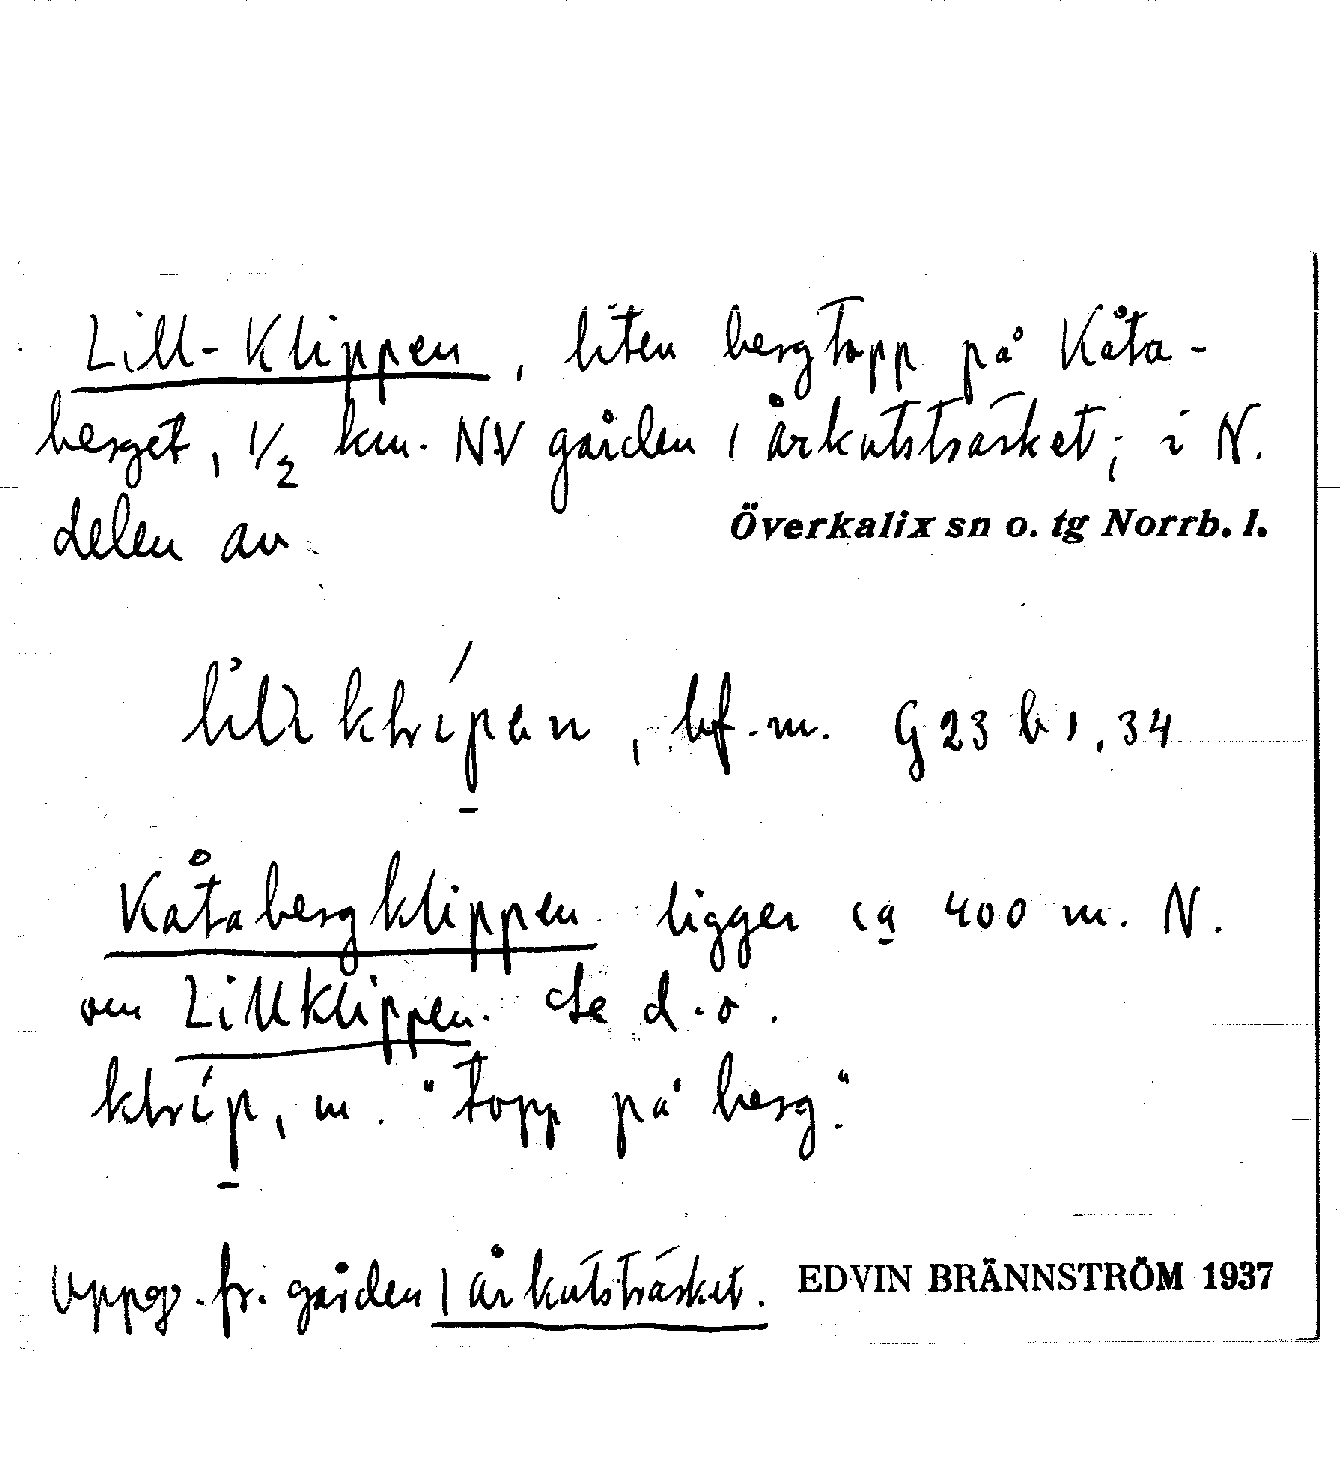 Lill-Klippen, liten bergtopp på Kåta-
berget, 1/2 km. NV gården 1 årkutsträsket; i N.
delen av
Överkalix sn o. tg Norrb. l.
bf. m. G 23 b 1, 34
Kåtabergklippen ligger ca 400 m. N.
om Lillklippen. Se d. o.
m. "topp på berg".
Uppg. fr. gården 1 årkutsträsket.
EDVIN BRÄNNSTRÖM 1937